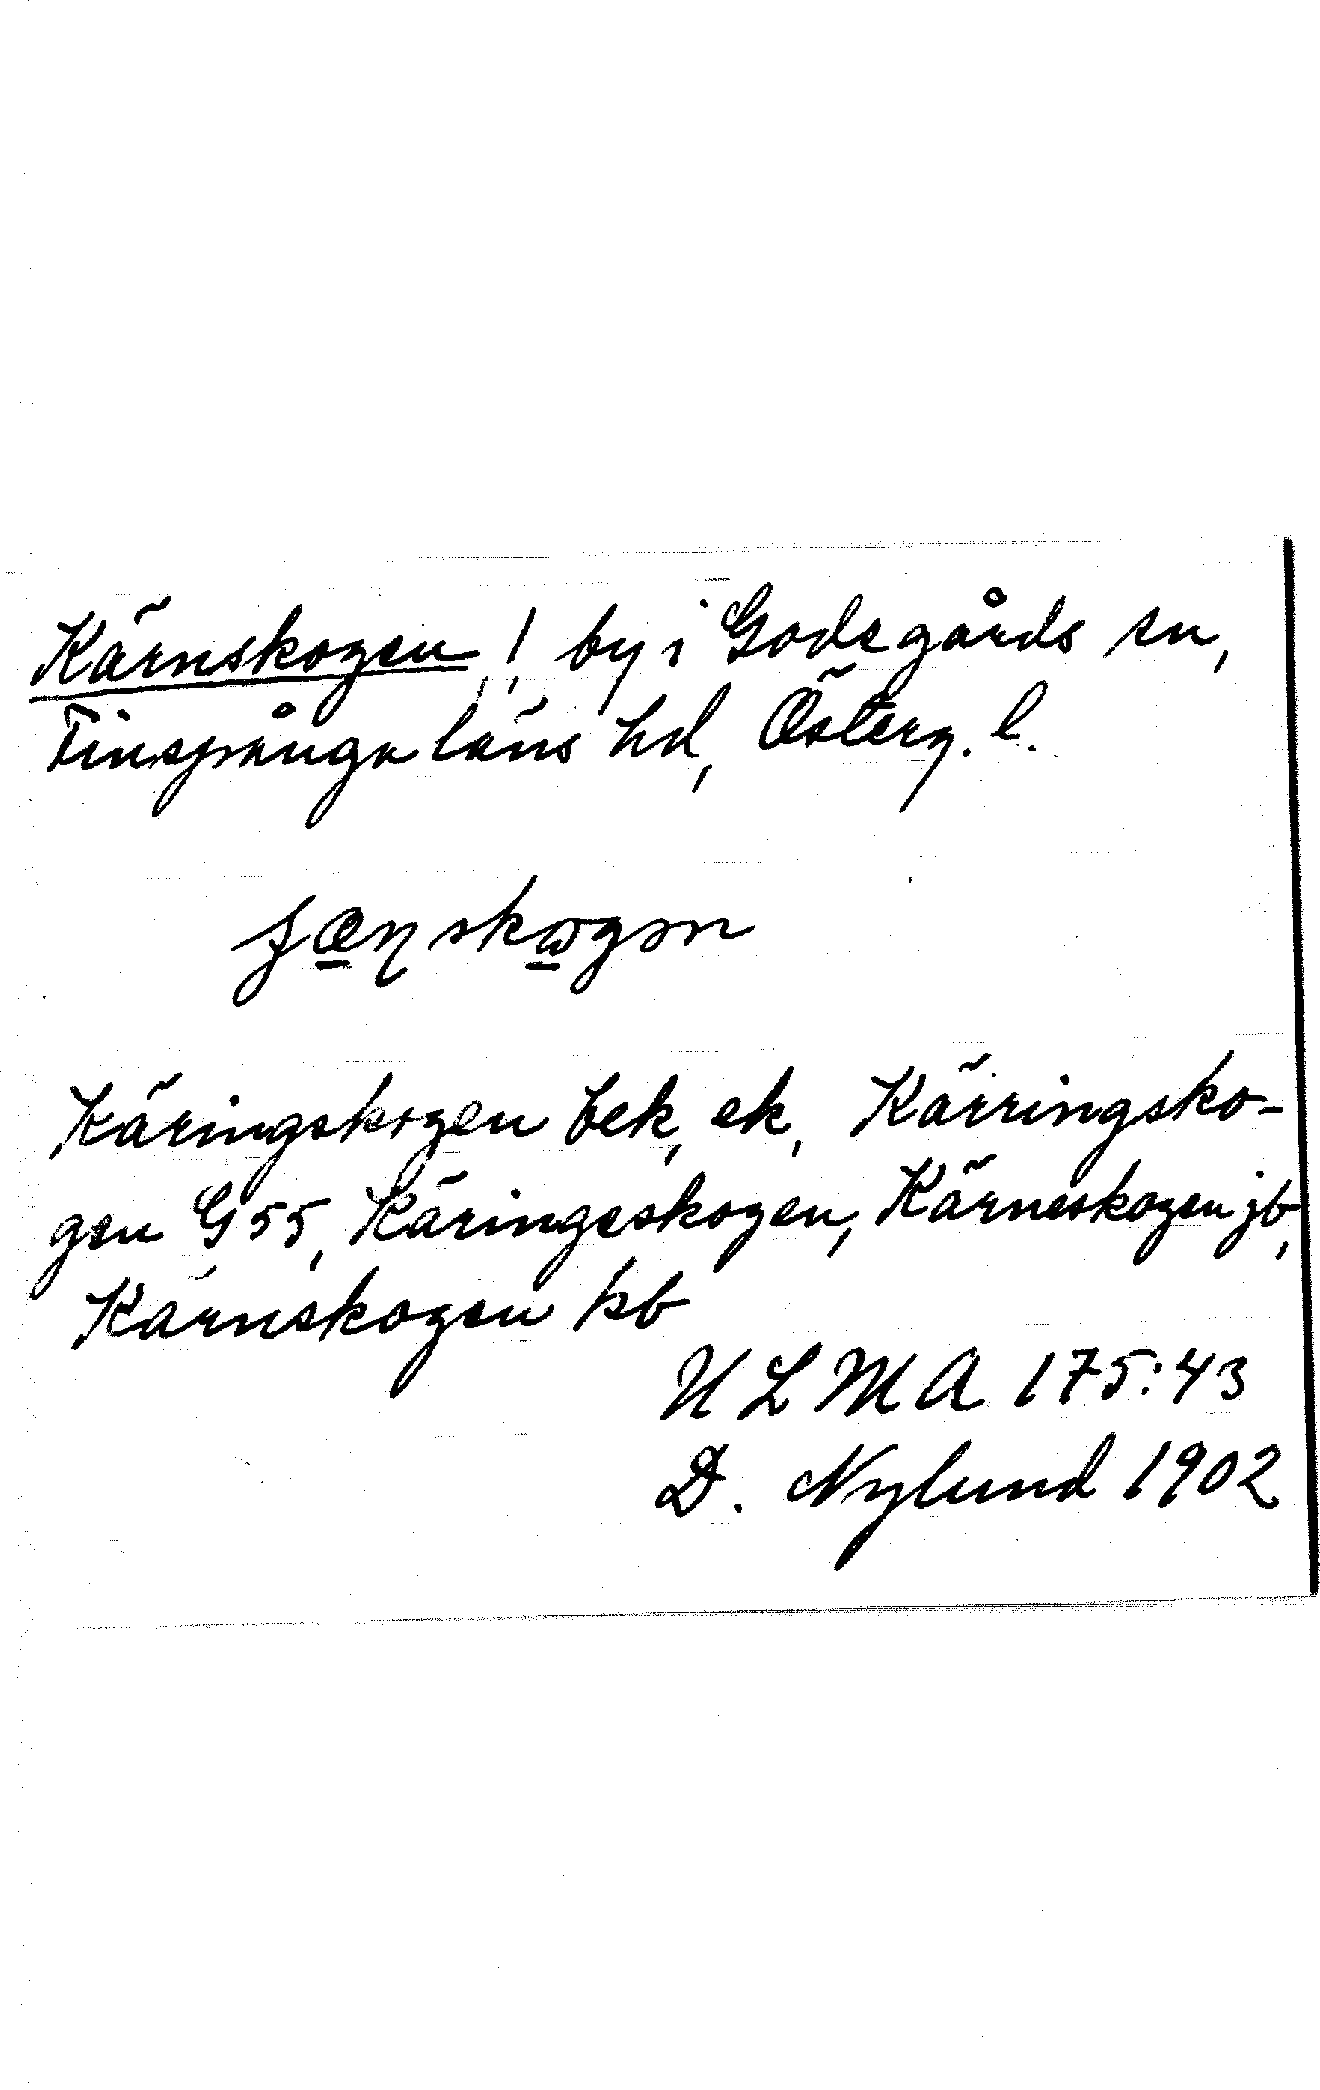 Kärnskogen, !, by i Godegårds sn,
Finspånga läns hd, Österg. l.
Käringskogen bek, ek, Kärringsko-
gen G 55, Käringeskogen, Kärneskogen jb,
Kärnskogen kb
ULMA 175:43
D. Nylund 1902